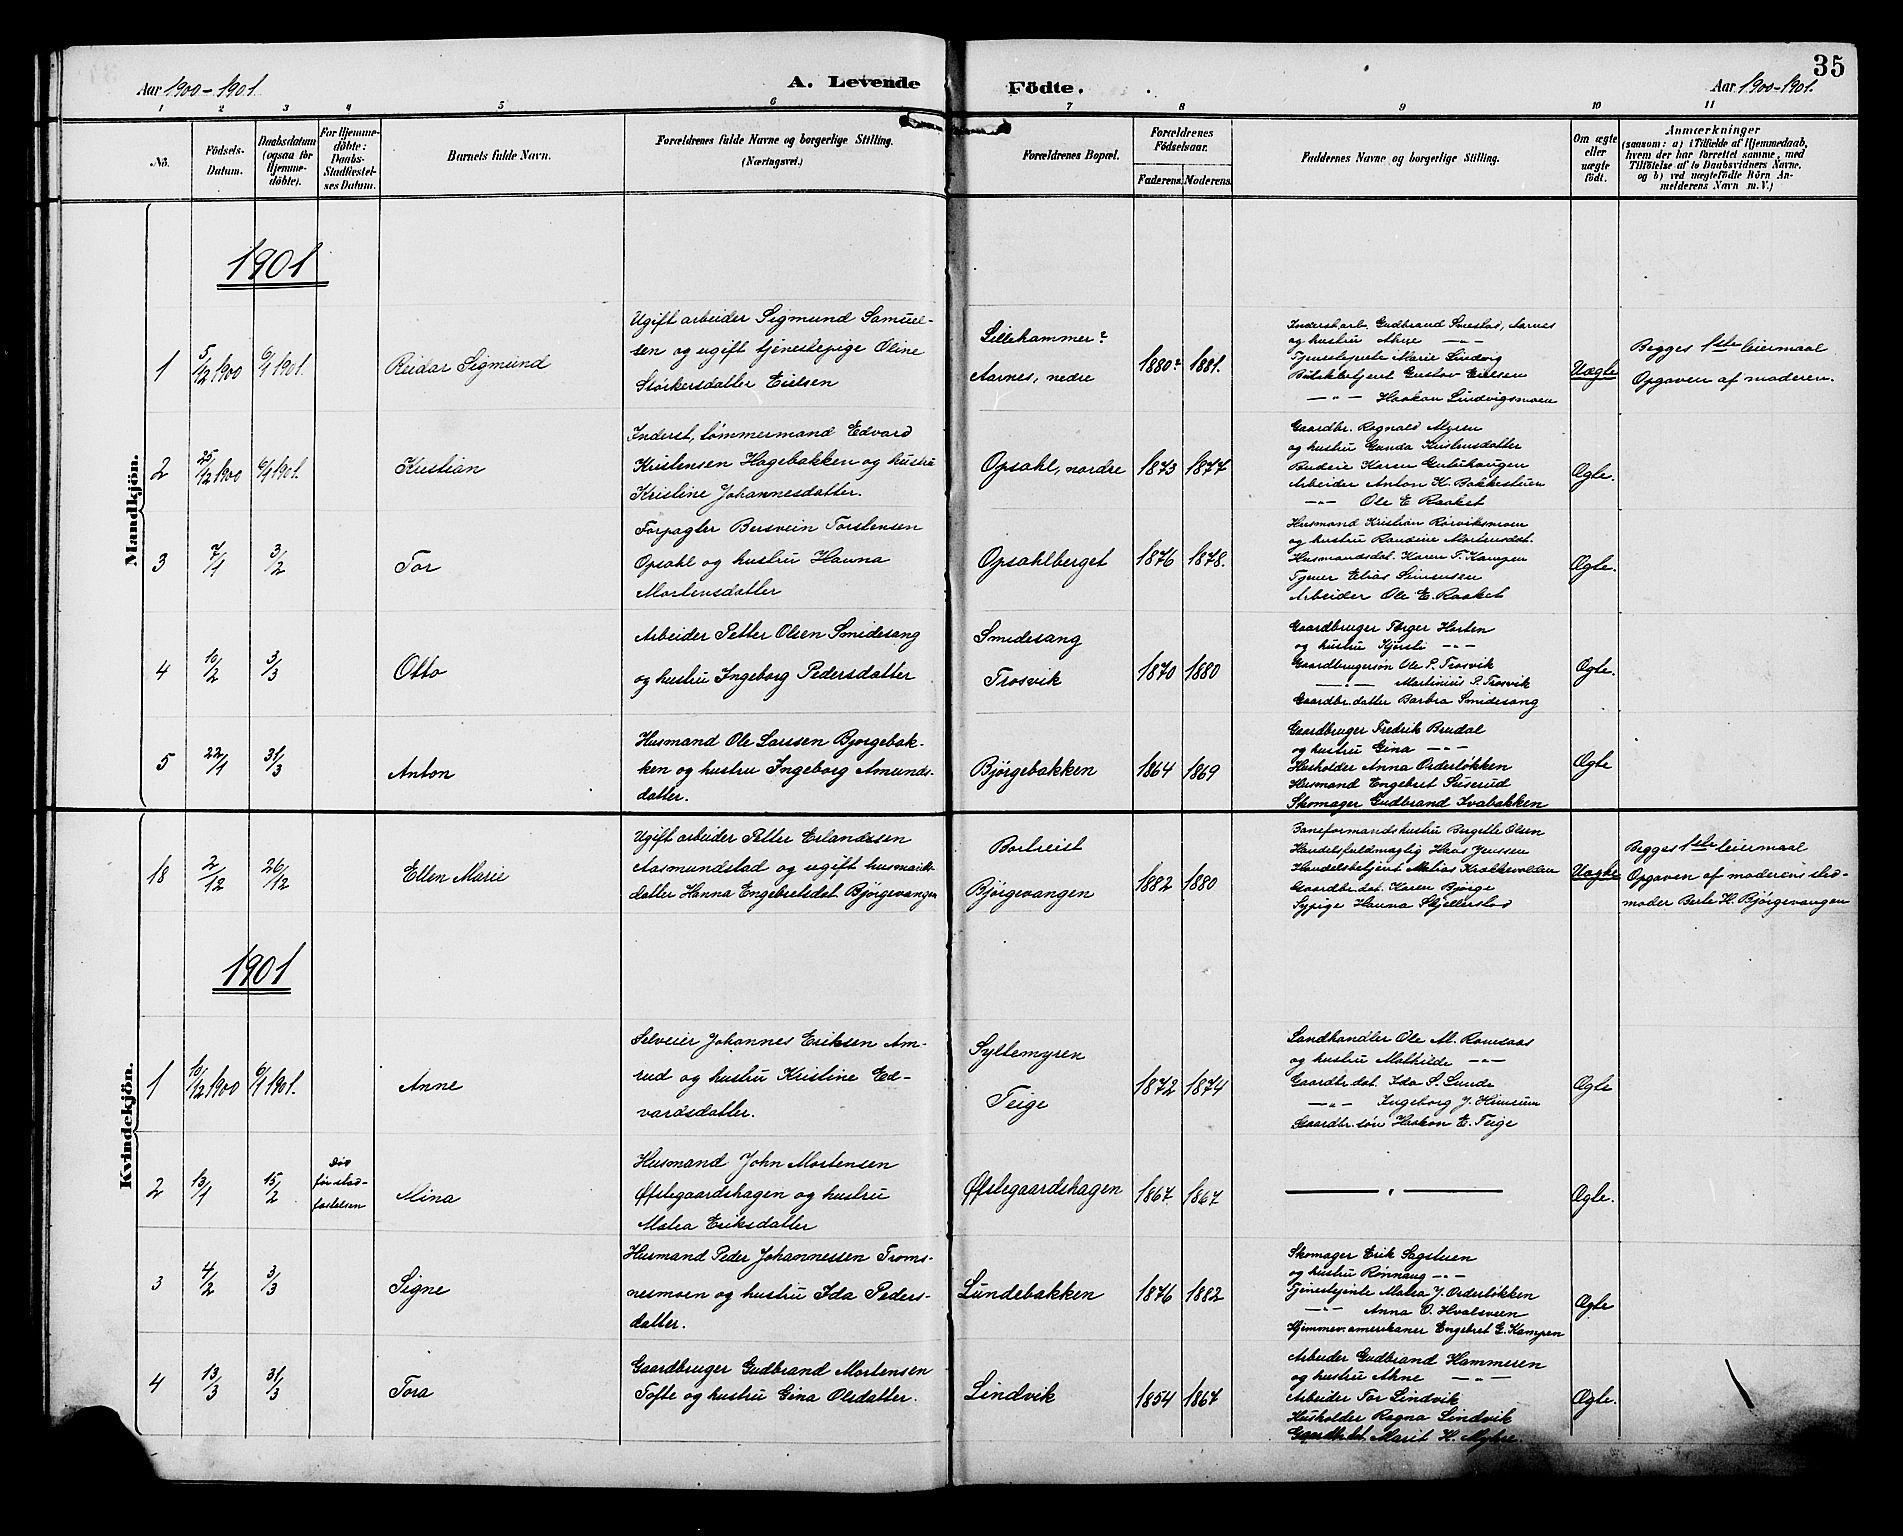 35
Aar 1900-1901.
A. Levende
Födte.
Aar 1900-1901.
1 2 3 4 5 6 7 8 9 10 11
No.
Födsels-
Datum.
Daabsdatum
(ogsaa for
Hjemme-
döbte).
For Hjemme-
döbte:
Daabs-
Stadfæstel-
ses Datum.
Barnets fulde Navn.
Forældrenes fulde Navne og borgerlige Stilling.
(Næringsvei.)
Forældrenes Bopæl.
Forældrenes
Födselsaar.
Faderens. Moderens.
Faddernes Navne og borgerlige Stilling.
Om ægte
eller
uægte
födt.
Anmærkninger
(saasom: a) i Tilfælde af Hjemmedaab,
hvem der har forrettet samme, med
Tilföielse af to Daabsvidners Navne.
og b) ved uægtefödte Börn An-
melderens Navn m. V.)
Mandkjön.
1901
1
5/12 1900
6/1 1901.
Reidar Sigmund
Ugift arbeider Sigmund Samuel-
sen og ugift tjenestepige Oline
Størkersdatter Eielsen
Lillehammer?
Aarnes, nedre
1880? 1881.
Inderst arb. Gudbrand Aarnes
og hustru Ahne —"—
Tjenestejente Marie Lindvig
Butikbetjent Gustav Eielsen
—"— Haakon Lindvigsmoen
Uægte
Begges 1ste leiermaal
Opgaven af moderen.
2
25/12 1900
6/1 1901.
Kristian
Inderst, tømmermand Edvard
Kristensen Hagebakken og hustru
Kristine Johannesdatter.
Opsahl, nordre
1873 1877
Gaardbr. Ragnald Myren
og hustru Gunda Kristensdatter
Budeie Karen Gutuhaugen
Arbeider Anton K. Bakkestuen
—"— Ole E. Raaket
Ægte.
3
7/1
3/2
Tor
Forpagter Bersvein Torstensen
Opsahl og hustru Hanna
Mortensdatter
Opsahlberget
1876 1878.
Husmand Kristian Rørviksmoen
og hustru Randine Mortensdat.
Husmandsdat. Karen T. Kampen
Tjener Elias Simensen
Arbeider Ole E. Raaket
Ægte.
4
10/2
3/3
Otto
Arbeider Petter Olsen Smidesang
og hustru Ingeborg Pedersdatter
Smidesang
Trosvik
1870 1880
Gaardbruger Torger Horten
og hustru Kjersti —"—
Gaardbrugersøn Ole P. Trosvik
—"— Martinius P. Trosvik
Gaardbr. datter Barbra Smidesang
Ægte.
5
22/1
31/3
Anton
Husmand Ole Larssen Bjørgebak-
ken og hustru Ingeborg Amunds-
datter.
Bjørgebakken
1864 1869
Gaardbruger Fredrik Brudal
og hustru Gina —"—
Husholder Anna Ørderløkken
Husmand Engebret Suserud
Skomager Gudbrand Ivabakken
Ægte
Kvindekjön.
18
2/12
26/12
Ellen Marie
Ugift arbeider Petter Erlandsen
Aasmundstad og ugift husmands-
datter Hanna Engebretsdat. Bjørgevangen
Bortreist
Bjørgevangen
1882 1880
Baneformandshustru Bergette Olsen
Handelsfuldmægtig Hans Jenssen
Handelsbetjent Matias Krækkevolden
Gaardbr. dat. Karen Bjørge
Sypige Hanna Skjellerstad
Uægte
Begges 1ste leiermaal
Opgaven af moderens sted-
moder Berte H. Bjørgevangen
1901
1
10/12 1900
6/1 1901.
Anne
Selveier Johannes Eriksen Am-
rud og hustru Kristine Ed-
vardsdatter.
Syltemyren
Teige
1872 1874
Landhandler Ole M. Romsaas
og hustru Mathilde —"—
Gaardbr. dat. Ida S. Lunde
—"— Ingeborg J. Himsum
Gaardbr. søn Haakon E. Teige
Ægte
2
13/1
15/2
Død
før stad-
fæstelsen
Mina
Husmand John Mortensen
Øfstegaardshagen og hustru
Matea Eriksdatter
Øfstegaardshagen
1867. 1867
—"—
Ægte.
3
4/2
3/3
Signe
Husmand Peder Johannessen Troms-
nesmoen og hustru Ida Peders-
datter.
Lundebakken
1876 1882
Skomager Erik Sagstuen
og hustru Rønnaug —"—
Tjenestejente Matea J. Ørderløkken
—"— Anna O. Hvalsveen
Hjemmev. amerikaner Engebret E. Kampen
Ægte
4
13/3
31/3
Tora
Gaardbruger Gudbrand Mortensen
Tofte og hustru Gina Olsdatter.
Lindvik
1854 1867
Arbeider Gudbrand Hammeren
og hustru Ahne —"—
Arbeider Tor Lindvik
Husholder Ragna Lindvik
Gaardbr. dat. Marit H. Myhre
Ægte.